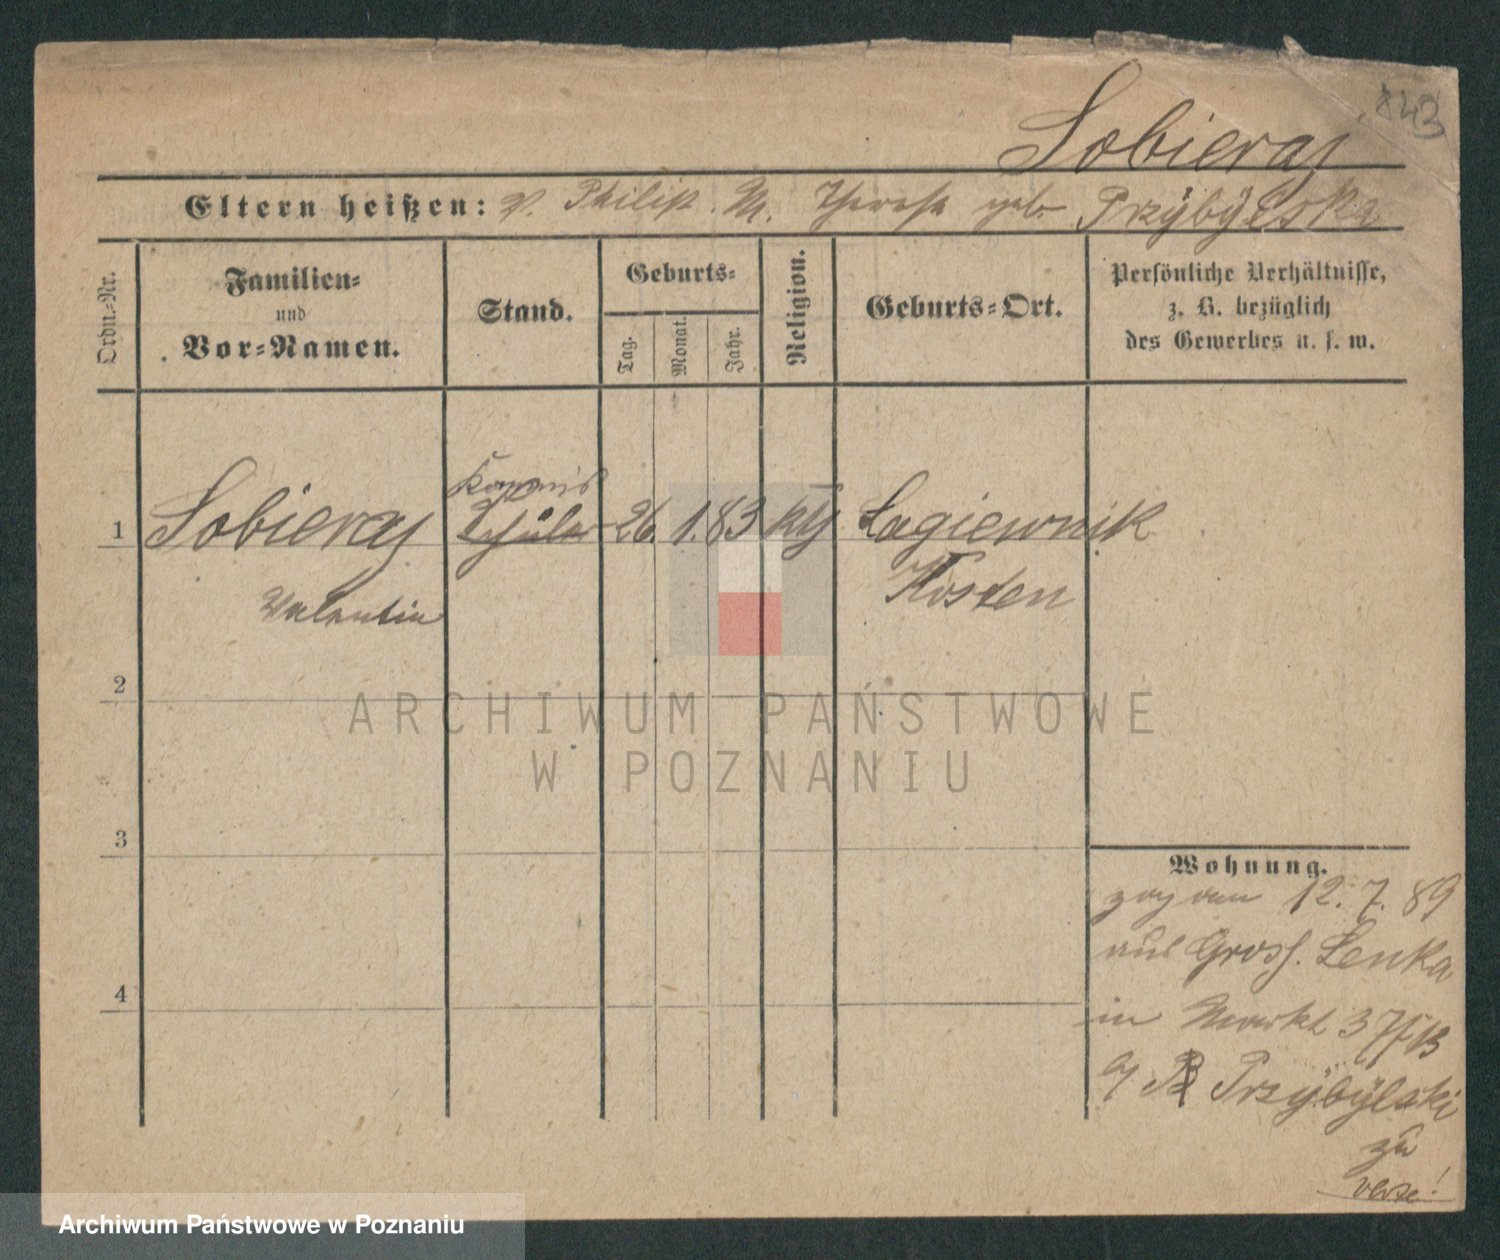 843
Sobieraj
Eltern heißen: V. Philipp. M. Theresa geb. Przybylska
Ordn.-Nr.
Familien-
und
Vor-Namen.
Stand.
Geburts-
Tag.
Monat.
Jahr.
Religion.
Geburts-Ort.
Persönliche Verhältnisse,
z. B. bezüglich
des Gewerbes u. s. w.
Kommis
1 Sobieraj Schüler 26. 1. 83 kth Łagiewnik
Valentin
Kosten
2
3
4
Wohnung.
zog am 12. 7. 89
aus Gross. Lenka
in Markt 37
Przybylski
zu
ARCHIWUM PAŃSTWOWE
W POZNANIU
Archiwum Państwowe w Poznaniu